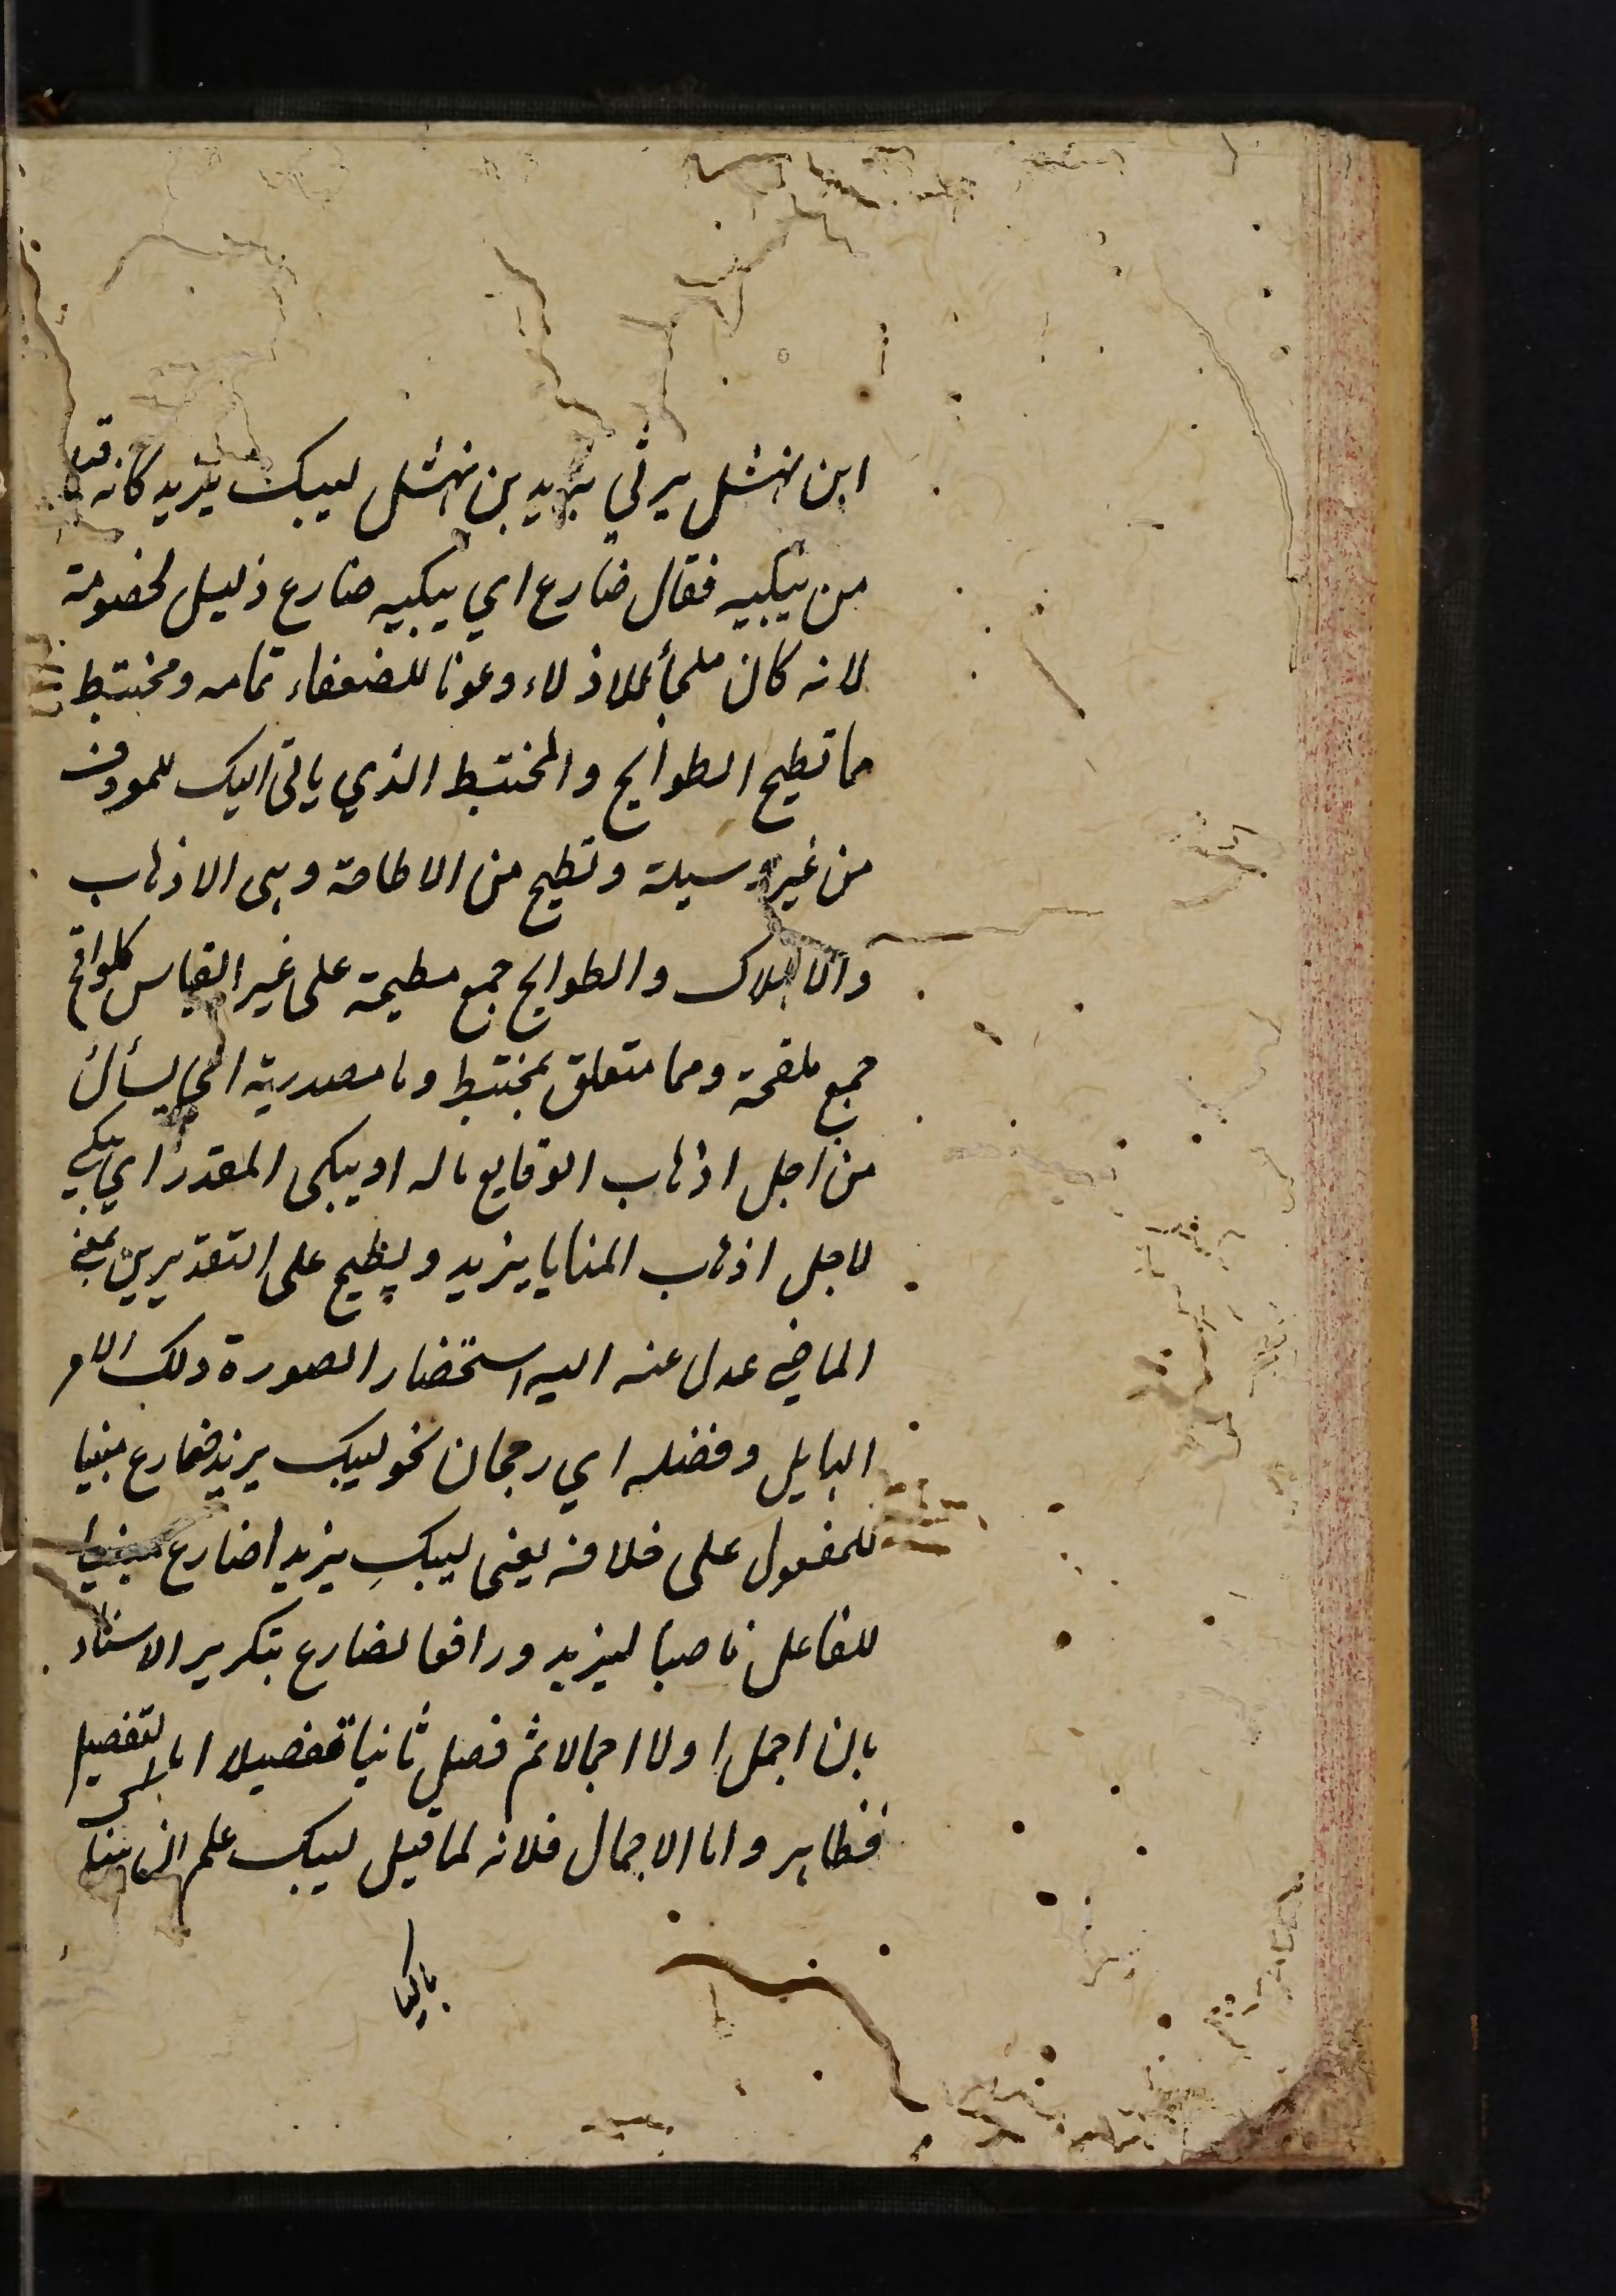 ابن نهشل يرثي يزيد بن نهشل ليبك يزيد كانه قيل
من يبكيه فقال ضارع اي يبكيه ضارع ذليل لخصومة
لانه كان ملجأ للاذلاء وعونا للضعفاء تمامه ومختبط
مما تطيح الطوايح والمختبط الذي ياتى اليك للمعروف
من غير وسيلة وتطيح من الاطاحة وهى الاذهاب
والاهلاك والطوايح جمع مطيحة على غير القياس كلواقح
جمع ملقحة ومما متعلق بمختبط وما مصدرية اي يسأل
من اجل اذهاب الوقايع ماله او يبكى المقدر اي يبكي
لاجل اذهاب المنايا يزيد ويطيح على التقديرين بمعنى
الماضي عدل عنه اليه استحضار الصورة ذلك الامر
الهايل وفضله اي رجحان نحو ليبك يزيد ضارع مبنيا
للمفعول على خلافه يعنى ليبكِ يزيد اضارع مبنيا
للفاعل ناصبا ليزيد ورافعا لضارع بتكرير الاسناد
بان اجمل اولا اجمالا ثم فصل ثانيا تفصيلا اما التفصيل
فظاهر واما الاجمال فلانه لما قيل ليبك علم ان هناك
باكيا